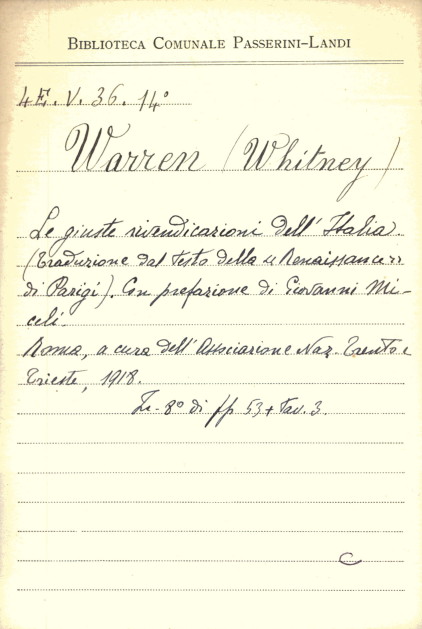 BIBLIOTECA COMUNALE PASSERINI-LANDI
4E. V. 36. 14°
Warren (Whitney)
Le giuste rivendicazioni dell'Italia.
(Traduzione dal testo della « Renaissance »
di Parigi). Con prefazione di Giovanni Mi-
celi.
Roma, a cura dell'Associazione Naz. Trento e
Trieste, 1918.
In-8° di pp 53 + tav. 3.
C